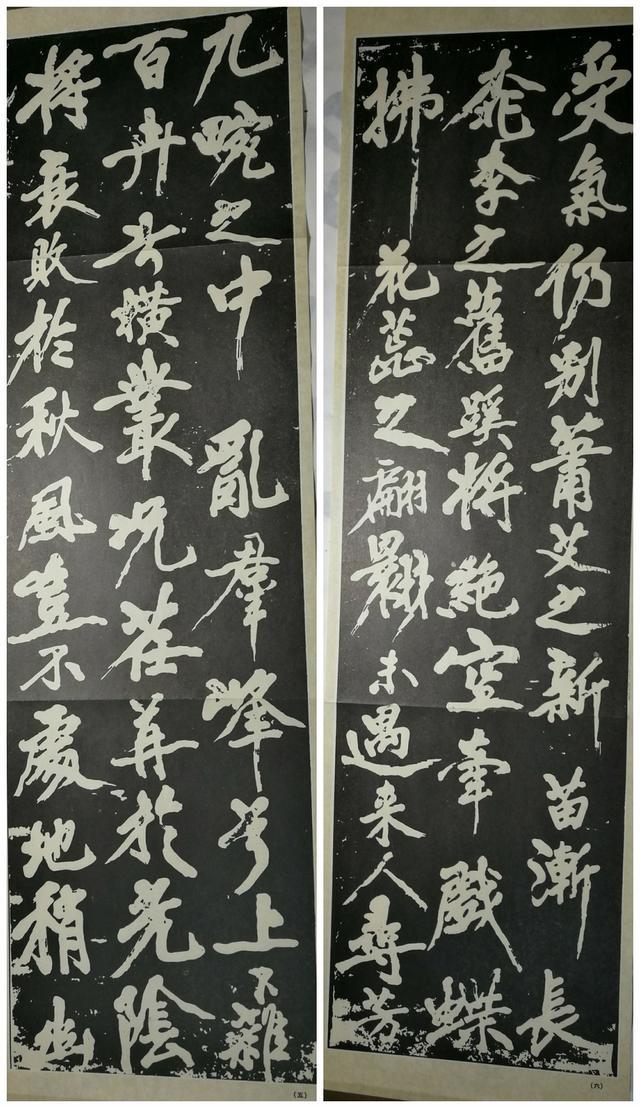 九畹之中亂羣峰兮上下雜
百卉兮橫叢況荏苒於光陰
將衰敗於秋風豈不處地稍幽
(五)
受氣仍別蕭艾之新苗漸長
桃李之舊蹊將絕空牽戲蝶
拂花蕊之翩翾未遇来人尋芳
(六)